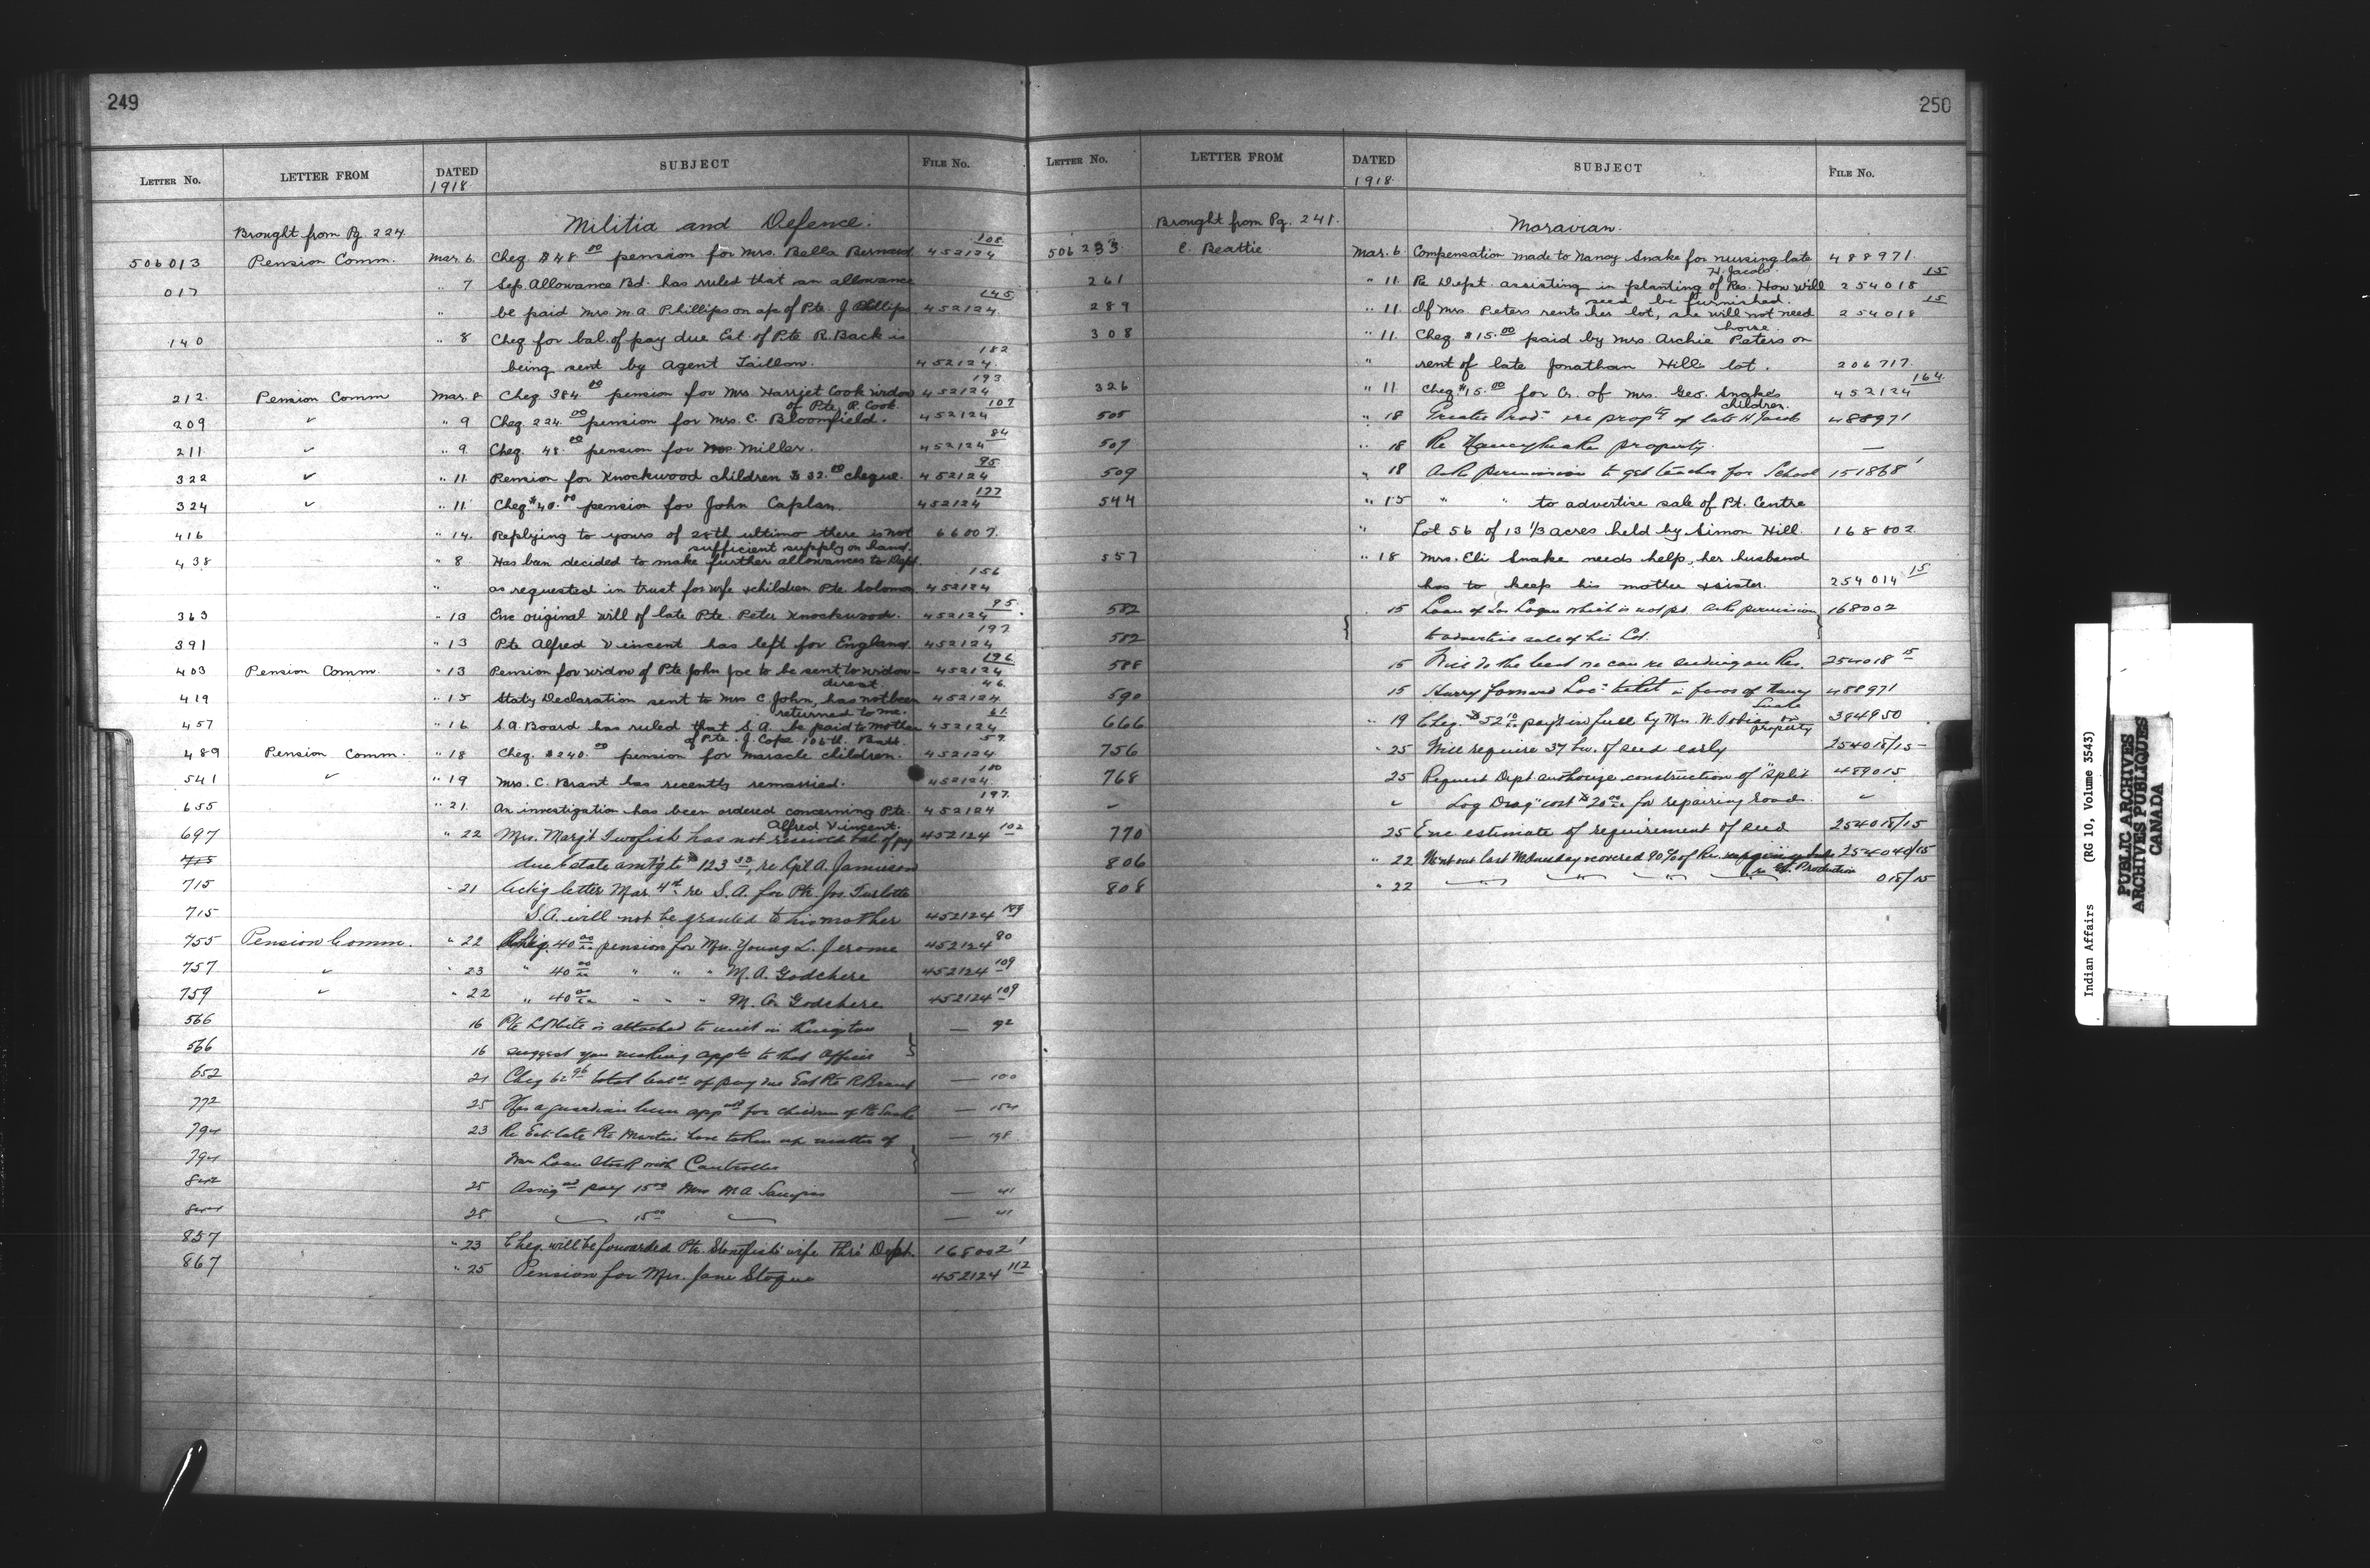 249
LETTER No. LETTER FROM DATED 1918 SUBJECT FILE No.
Brought from Pg 224. Militia and Defence.
506013 Pension Comm. Mar. 6. Cheq $48.00 pension for Mrs. Bella Bernard 452124 108
017 " 7 Sep. Allowance Bd. has ruled that an allowance
" be paid Mrs M.A Phillips on a/c of Pte. J Phillips 452124. 145
140 " 8 Cheq for bal. of pay due Est. of Pte R. Back is
being sent by Agent Taillon. 452124. 182
212. Pension Comm Mar. 8 Cheq 384.00 pension for Mrs Harriet Cook widow 452124 193
of Pte. R. Cook.
209 ✓ " 9 Cheq. 224.00 pension for Mrs. C. Bloomfield. 452124 107
211 ✓ " 9 Cheq. 48.00 pension for Miller. 452124 84
322 ✓ " 11 Pension for Knockwood children $32.00 cheque. 452124 95
324 ✓ " 11 Cheq $40.00 pension for John Caplan. 452124 177
416 " 14. Replying to yours of 28th ultimo there is not 66007.
sufficient supply on hand.
438 " 8 Has ban decided to make further allowances to Dept.
" as requested in trust for wife & children Pte Solomon 452124 156
363 " 13 Enc original will of late Pte. Peter Knockwood. 452124 95
391 " 13 Pte Alfred Vincent has left for England. 452124 197
403 Pension Comm. " 13 Pension for widow of Pte John Joe to be sent to widow 452124. 196
direct.
419 " 15 Staty Declaration sent to Mrs C John, has not been 452124. 46
returned to me.
457 " 16 S.A Board has ruled that S.A. be paid to mother 452124. 61
of Pte. J. Cope 105th. Batt.
489 Pension Comm. " 18 Cheq. $240.00 pension for Maracle children. 452124 59.
541 ✓ " 19 Mrs. C. Brant has recently remarried. 452124. 180
655 " 21. An investigation has been ordered concerning Pte. 452124 197.
Alfred Vincent.
697 " 22 Mrs. Marg't Twofish has not received bal. of pay 452124 102
715 due Estate amt'g to $123.33, re Cpl A. Jamieson
715 " 21 Ack'g letter Mar 4th re S.A. for Pte. Jos. Turlotte
715 S.A. will not be granted to his mother 452124 189
755 Pension Comm. " 22 Cheq. 40.00 pension for Mrs. Young L. Jerome 452124 80
757 ✓ " 23 " 40.00 " " " M.A. Godchere 452124 109
759 ✓ " 22 " 40.00 " " " M. A. Godchere 452124 109
566 16 Pte White is attached to unit in Kingston — 92
566 16 suggest you making appln to that Officer
652 21 Cheq 62.96 total baln of pay due Est Pte R Brant — 100
772 25 Has a guardian been appntd for children of Pte Snake — 154
794 23 Re Est late Pte Martin have taken up matter of — 198
794 War Loan Stock with Controller
842 25 Assigned pay 15.00 Mrs M A — 41
844 25 " 15.00 " — 41
857 " 23 Cheq. will be forwarded Pte. Stonefish's wife thro' Dept. 168002 1
867 " 25 Pension for Mrs. Jane Stogue 452124 112
250
LETTER No. LETTER FROM DATED 1918 SUBJECT FILE No.
Brought from Pg. 241. Moravian.
506233 C. Beattie Mar. 6 Compensation made to Nancy Snake for nursing late 488971.
H. Jacobs.
261 " 11 Re Dept. assisting in planting of Res. How will 254018 15
seed be furnished.
289 " 11. If Mrs Peters rents her lot, she will not need 254018 15
house.
308 " 11. Cheq $15.00 paid by Mrs. Archie Peters on
" rent of late Jonathan Hill's lot. 206717.
326 " 11 Cheq $15.00 for Cr. of Mrs. Geo. Snake's 452124 164
children.
505 " 18 Greater Prod. re propty of late H Jacob 488971
507 " 18 Re Nancy Snake property. —
509 " 18 Asks permission to get teacher for School 151868 1
544 " 15 " " to advertise sale of Pt. Centre
" Lot 56 of 13 1/3 acres held by Simon Hill. 168002
557 " 18 Mrs. Eli Snake needs help, her husband
has to keep his mother & sister. 254014 15
582 15 Loan of Jos Logan which is not pd. Asks permission 168002
582 to advertise sale of his Lot.
588 15 Will do the best we can re seeding on Res. 254018 15
590 15 Harry forward Loc: ticket in favor of Nancy 488971
Snake
666 " 19 Cheq. $52.10 pay't in full by Mrs. W. Tobias on 384950
property
756 " 25 Will require 37 bu. of seed early 254018/15
768 25 Request Dept. authorize construction of "split 489015
✓ ✓ Log Drag" cost $20.00 for repairing roads. ✓
770 25 Enc. estimate of requirement of seed 254018/15
806 " 22 Went out last Wednesday covered 90% of Res. 254040/15
re Gt. Production
808 " 22 " " " " 018/15
Indian Affairs (RG 10, Volume 3543)
PUBLIC ARCHIVES
ARCHIVES PUBLIQUES
CANADA